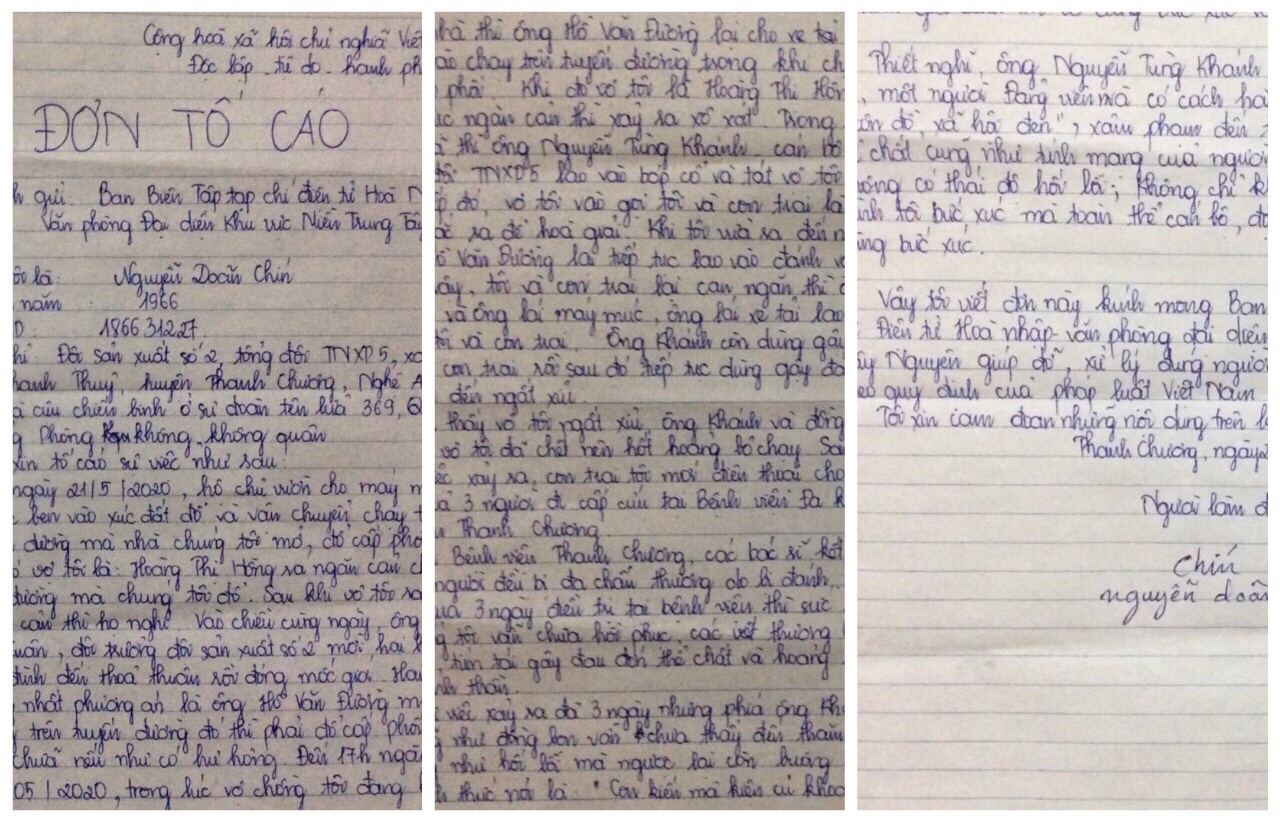 Cộng hoà xã hội chủ nghĩa Việt
Độc lập - tự do - hạnh ph
ĐƠN TỐ CÁO
h gửi: Ban Biên Tập tạp chí điện tử Hoà N
Văn phòng Đại diện Khu vực Miền Trung Tây
ôi là: Nguyễn Doãn Chín
năm : 1966
D: 186631227
hỉ: Đội sản xuất số 2, tổng đội TNXP5, xã
hanh Thuỷ, huyện Thanh Chương, Nghệ A
à cựu chiến binh ở sư đoàn tên lửa 369, Q
g Phòng không không quân
xin tố cáo sự việc như sau:
ngày 21/5/2020, hộ chủ vườn cho máy m
ben vào xúc đất đổ và vận chuyển chạy t
đường mà nhà chúng tôi mở, đổ cấp phố
ó vợ tôi là: Hoàng Thị Hồng ra ngăn cản ch
đường mà chúng tôi đổ. Sau khi vợ tôi ra
cản thì họ nghỉ. Vào chiều cùng ngày, ông
uân, đội trưởng đội sản xuất số 2 mời hai h
đình đến thoả thuận rồi đóng mốc giới. Hai
nhất phương án là ông Hồ Văn Đường m
trên tuyến đường đó thì phải đổ cấp phối
chữa nếu như có hư hỏng. Đến 17h ngà
05/2020, trong lúc vợ chồng tôi đang
hà thì ông Hồ Văn Đường lại cho xe tải
ào chạy trên tuyến đường trong khi ch
phối. Khi đó vợ tôi là Hoàng Thị Hồn
ục ngăn cản thì xảy ra xô xát. Trong
à thì ông Nguyễn Tùng Khánh cán bộ
đội TNXP5 lao vào bóp cổ và tát vợ tôi
p đó, vợ tôi vào gọi tôi và con trai là
ắc ra để hoà giải. Khi tôi vừa ra đến n
ồ Văn Đường lại tiếp tục lao vào đánh v
ây, tôi và con trai lại can ngăn thì ô
và ông lái máy múc, ông lái xe tải lao
ôi và con trai. Ông Khánh còn dùng gậ
con trai rồi sau đó tiếp tục dùng gậy đá
đến ngất xỉu.
thấy vợ tôi ngất xỉu, ông Khánh và đồng
vợ tôi đã chết nên hốt hoảng bỏ chạy. Sa
ệc xảy ra, con trai tôi mới điện thoại cho
ả 3 người đi cấp cứu tại Bệnh viện Đa k
n Thanh Chương.
Bệnh viện Thanh Chương, các bác sĩ kết
người đều bị đa chấn thương do bị đánh,
ua 3 ngày điều trị tại bệnh viện thì sức
g tôi vẫn chưa hồi phục, các vết thương
tiện tái gây đau đớn thể chất và hoang
nh thần.
việc xảy ra đã 3 ngày nhưng phía ông Kh
như đồng bọn vẫn chưa thấy đến thăm
như hối lỗi mà ngược lại còn huống
h thức nói là: "Con kiến mà kiện củ khoa
Thiết nghĩ, ông Nguyễn Tùng Khánh
, một người Đảng viên mà có cách hà
ôn đồ, xã hội đen", xâm phạm đến t
chất cũng như tính mạng của ngườ
ông có thái độ hối lỗi; Không chỉ k
nh tôi bức xúc mà toàn thể cán bộ, đ
ng bức xúc.
Vậy tôi viết đơn này kính mong Ban
Điện tử Hoà nhập - văn phòng đại diện
ây Nguyên giúp đỡ, xử lý đúng ngườ
eo quy định của pháp luật Việt Nam
Tôi xin cam đoan những nội dung trên l
Thanh Chương, ngày 2
Người làm đ
Chín
nguyễn doãn